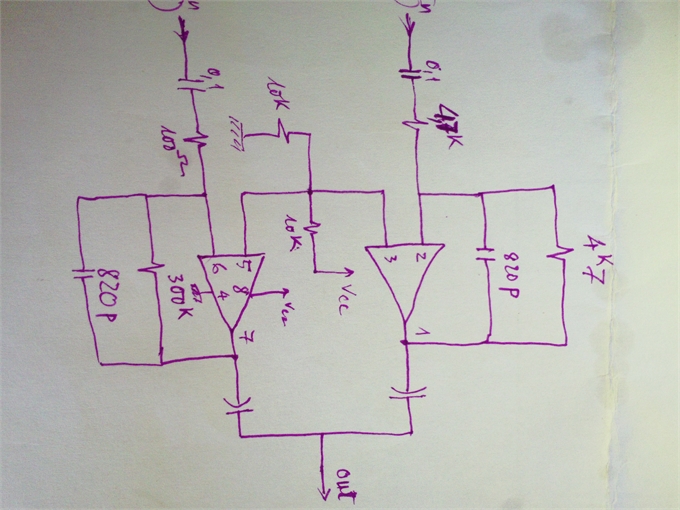 in
0,1
4,7K
4K7
820P
2
3
1
10K
10K
Vcc
in
0,1
100Ω
6
5
4
8
Vcc
7
300K
820P
out